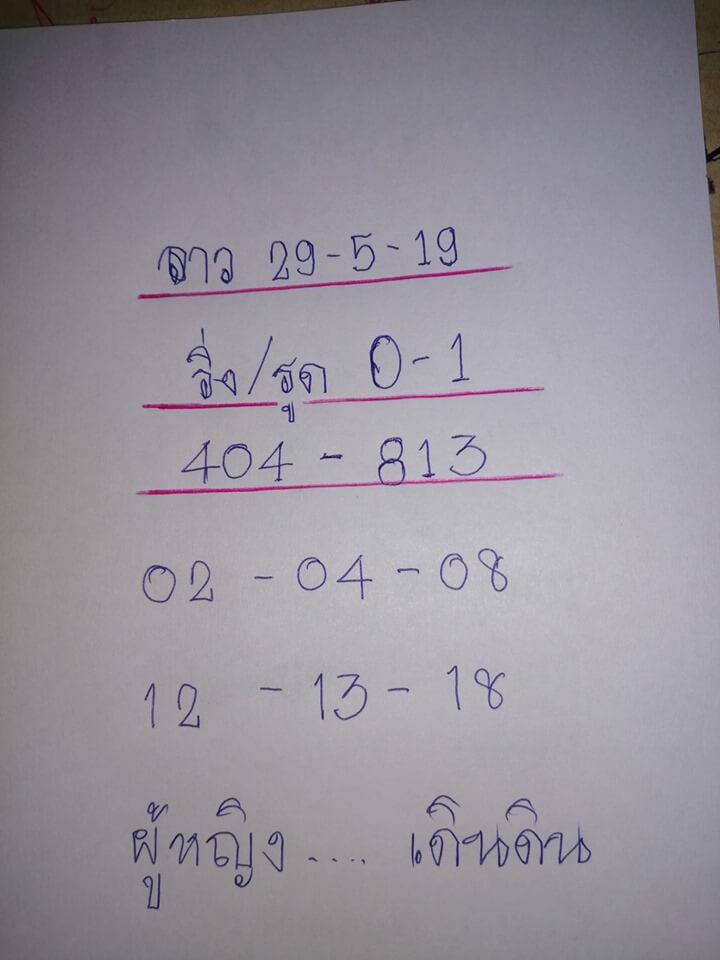 ลาว 29-5-19
วิ่ง/รูด 0-1
404 - 813
02 - 04 - 08
12 - 13 - 18
ผู้หญิง.... เดินดิน